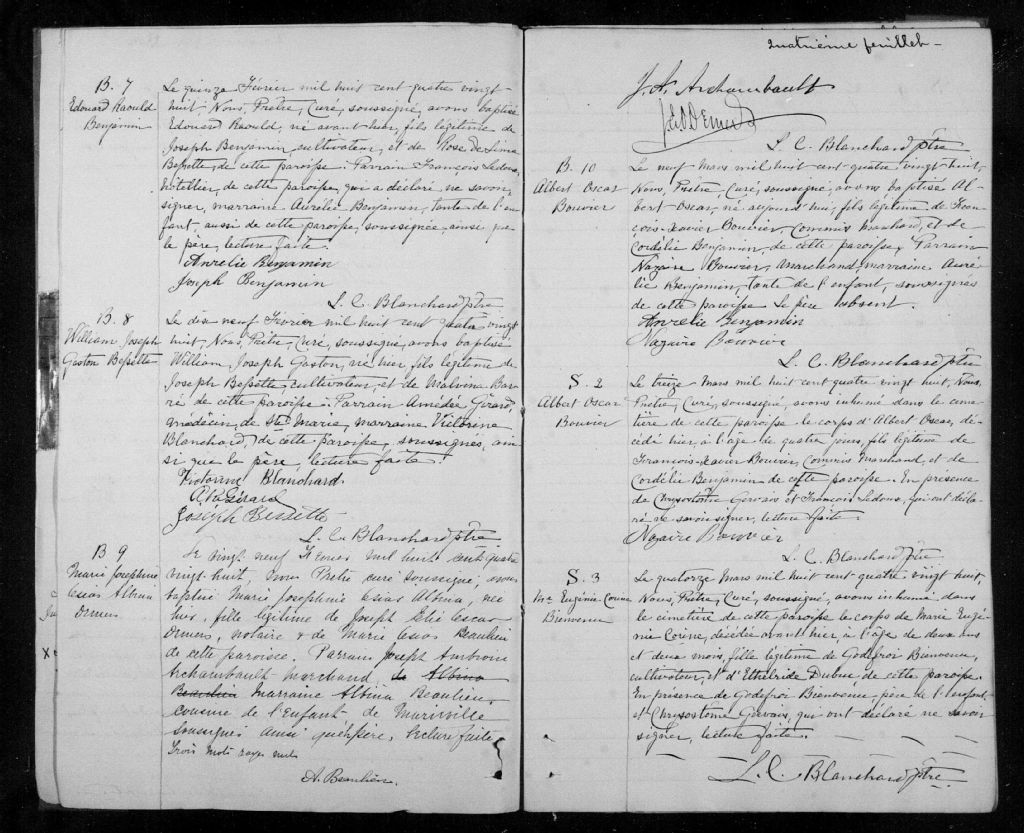 B. 7
Edouard Raould
Benjamin
Le quinze Février mil huit cent quatre vingt
huit, Nous, Prêtre, Curé, soussigné, avons baptisé
Edouard Raould, né avant hier, fils légitime de
Joseph Benjamin, cultivateur, et de Rose de Lima
Bessette, de cette paroisse. Parrain François Ledoux,
hôtellier, de cette paroisse, qui a déclaré ne savoir
signer, marraine Aurélie Benjamin, tante de l'en-
fant, aussi de cette paroisse, soussignée, ainsi que
le père, lecture faite.
Aurélie Benjamin
Joseph Benjamin
L. C. Blanchard ptre
B. 8
William Joseph
Gaston Bessette
Le dix neuf Février mil huit cent quatre vingt
huit, Nous, Prêtre, Curé, soussigné, avons baptisé
William Joseph Gaston, né hier, fils légitime de
Joseph Bessette, cultivateur, et de Malvina Bar-
ré de cette paroisse. Parrain Amédée Girard,
médecin, de Ste Marie, marraine Victorine
Blanchard, de cette paroisse, soussignés, ain-
si que le père, lecture faite.
Victorine Blanchard.
Girard
Joseph Bessette
L. C. Blanchard ptre
B 9
Marie Josephine
Albina
Le vingt neuf Février mil huit cent quatre
vingt-huit, nous Prêtre curé soussigné, avons
baptisé Marie Josephine Albina, née
hier, fille légitime de Joseph Elié
notaire & de Marie Beaulieu
de cette paroisse. Parrain Joseph Ambroise
Archambault marchand de Albina
Beaulieu Marraine Albina Beaulieu,
cousine de l'Enfant, de Marieville
soussignés ainsi que le père, lecture faite
Trois mots rayés nuls
A. Beaulieu.
Quatrième feuillet
J. A. Archambault
L. C. Blanchard ptre
B. 10
Albert Oscar
Bouvier
Le neuf Mars mil huit cent quatre vingt huit,
Nous, Prêtre, Curé, soussigné, avons baptisé Al-
bert Oscar, né aujourd'hui, fils légitime de Fran-
çois-Xavier Bouvier, Commis marchand, et de
Cordélie Benjamin, de cette paroisse. Parrain
Nazaire Bouvier, marchand, marraine Auré-
lie Benjamin, tante de l'enfant, soussignés
de cette paroisse Le père absent.
Aurélie Benjamin
Nazaire Bouvier
L. C. Blanchard ptre
S. 2
Albert Oscar
Bouvier
Le treize Mars mil huit cent quatre vingt huit, Nous,
Prêtre, Curé, soussigné, avons inhumé dans le cime-
tière de cette paroisse le corps d'Albert Oscar, dé-
cédé hier, à l'âge de quatre jours, fils légitime de
François-Xavier Bouvier, Commis Marchand, et de
Cordélie Benjamin de cette paroisse. En présence
de Chrysostôme Gervais et François Ledoux, qui ont décla-
ré ne savoir signer, lecture faite.
Nazaire Bouvier
L. C. Blanchard ptre
S. 3
Me Eugénie Corine
Bienvenue
Le quatorze Mars mil huit cent quatre vingt huit,
Nous, Prêtre, Curé, soussigné, avons inhumé dans
le cimetière de cette paroisse le corps de Marie Eugé-
nie Corine, décédée avant hier, à l'âge de deux ans
et deux mois, fille légitime de Godefroi Bienvenue,
cultivateur, et d'Ethelride Dubuc de cette paroisse.
En présence de Godefroi Bienvenue, père de l'enfant,
et Chrysostôme Gervais, qui ont déclaré ne savoir
signer, lecture faite.
L. C. Blanchard ptre